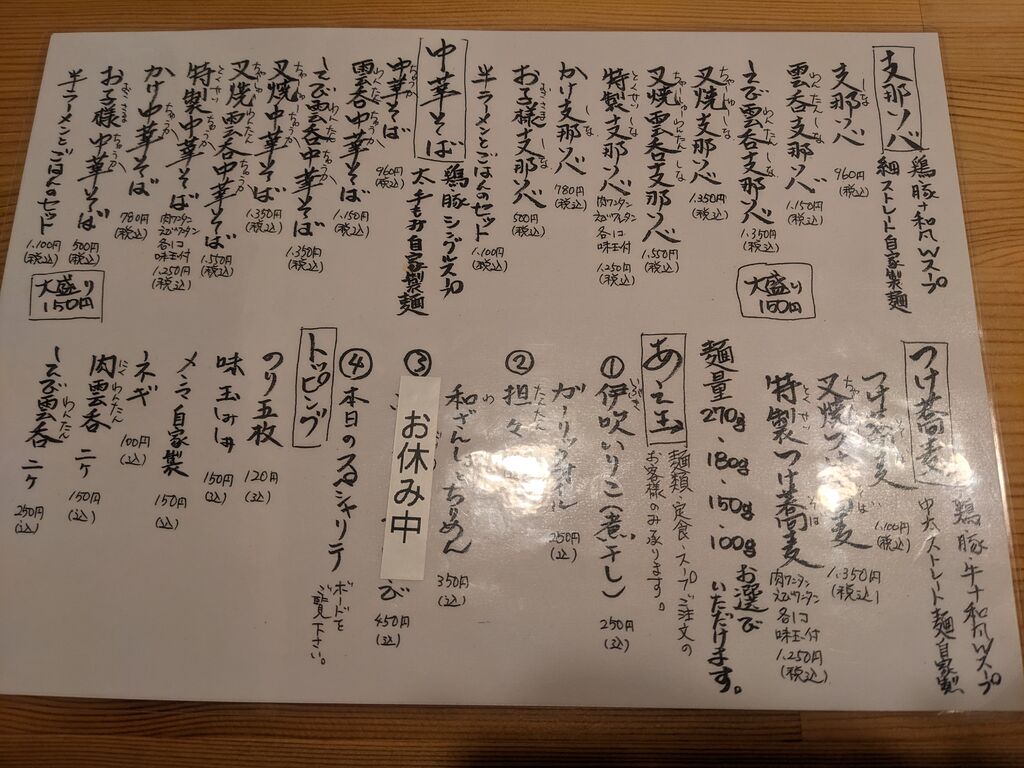 支那ソバ
鶏豚+和風Wスープ
細ストレート自家製麺
支那ソバ
960円
(税込)
雲呑支那ソバ
1.150円
(税込)
えび雲呑支那ソバ
1.350円
(税込)
叉焼支那ソバ
1.350円
(税込)
叉焼雲呑支那ソバ
1.550円
(税込)
特製支那ソバ
肉ワンタン
えびワンタン
各1コ
味玉付
1.250円
(税込)
かけ支那ソバ
780円
(税込)
お子様支那ソバ
500円
(税込)
半ラーメンとごはんのセット
1.100円
(税込)
大盛り
150円
中華そば
鶏豚シングルスープ
太手もみ自家製麺
中華そば
960円
(税込)
雲呑中華そば
1.150円
(税込)
えび雲呑中華そば
1.350円
(税込)
叉焼中華そば
1.350円
(税込)
叉焼雲呑中華そば
1.550円
(税込)
特製中華そば
肉ワンタン
えびワンタン
各1コ
味玉付
1.250円
(税込)
かけ中華そば
780円
(税込)
お子様中華そば
500円
(税込)
半ラーメンとごはんのセット
1.100円
(税込)
大盛り
150円
つけ蕎麦
鶏豚牛+和風Wスープ
中太ストレート麺自家製
つけ蕎麦
1.100円
(税込)
叉焼つけ蕎麦
1.350円
(税込)
特製つけ蕎麦
肉ワンタン
えびワンタン
各1コ
味玉付
1.250円
(税込)
麺量 270g・180g・150g・100g お選びいただけます。
あえ玉
麺類・定食・スープご注文の
お客様のみ承ります。
① 伊吹いりこ(煮干し)
250円
(込)
ガーリック
250円
(込)
② 担々
和ざんしょうちりめん
350円
(込)
③
お休み中
び
450円
(込)
④ 本日のスペシャリテ
ボードを
ご覧下さい。
トッピング
のり五枚
120円
(込)
味玉み
150円
(込)
メンマ自家製
150円
(込)
ネギ
100円
(込)
肉雲呑 二ケ
150円
(込)
えび雲呑 二ケ
250円
(込)